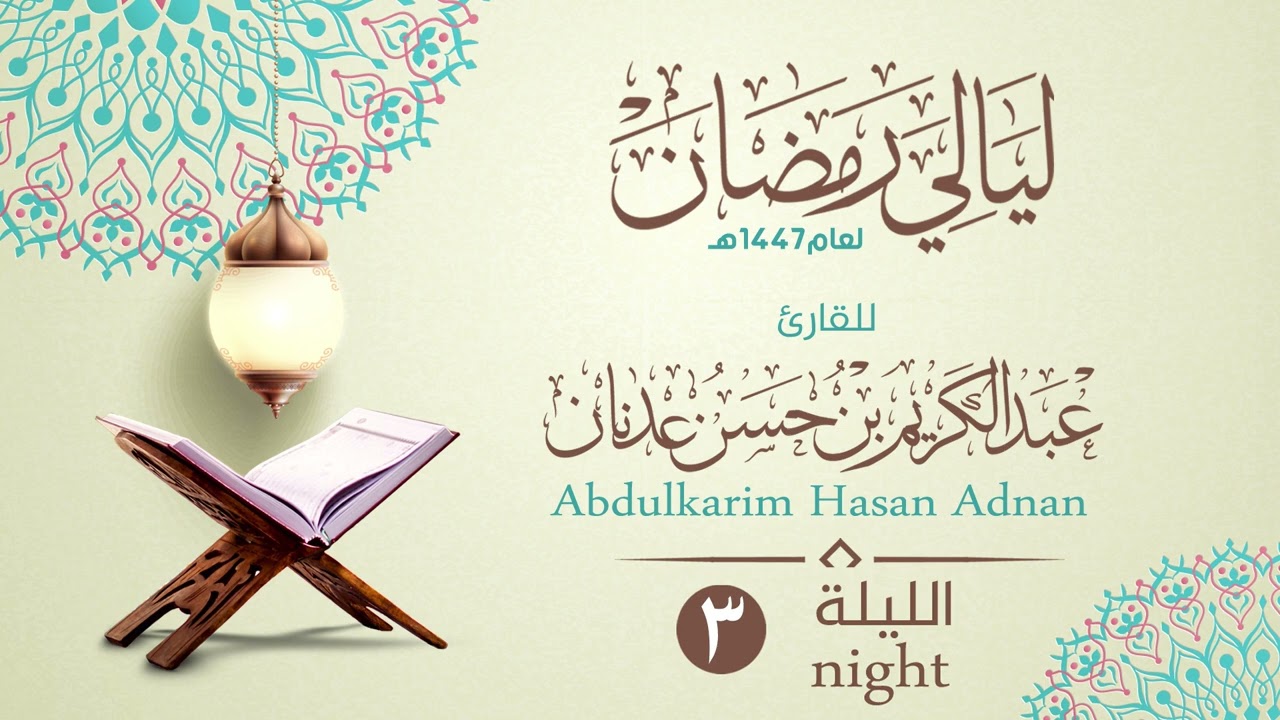 لَيَالِي رَمَضَانَ
لعام 1447هـ
للقارئ
عَبْدالكَرِيم بْنُ حَسَنُ عدنان
Abdulkarim Hasan Adnan
الليلة ٣
night